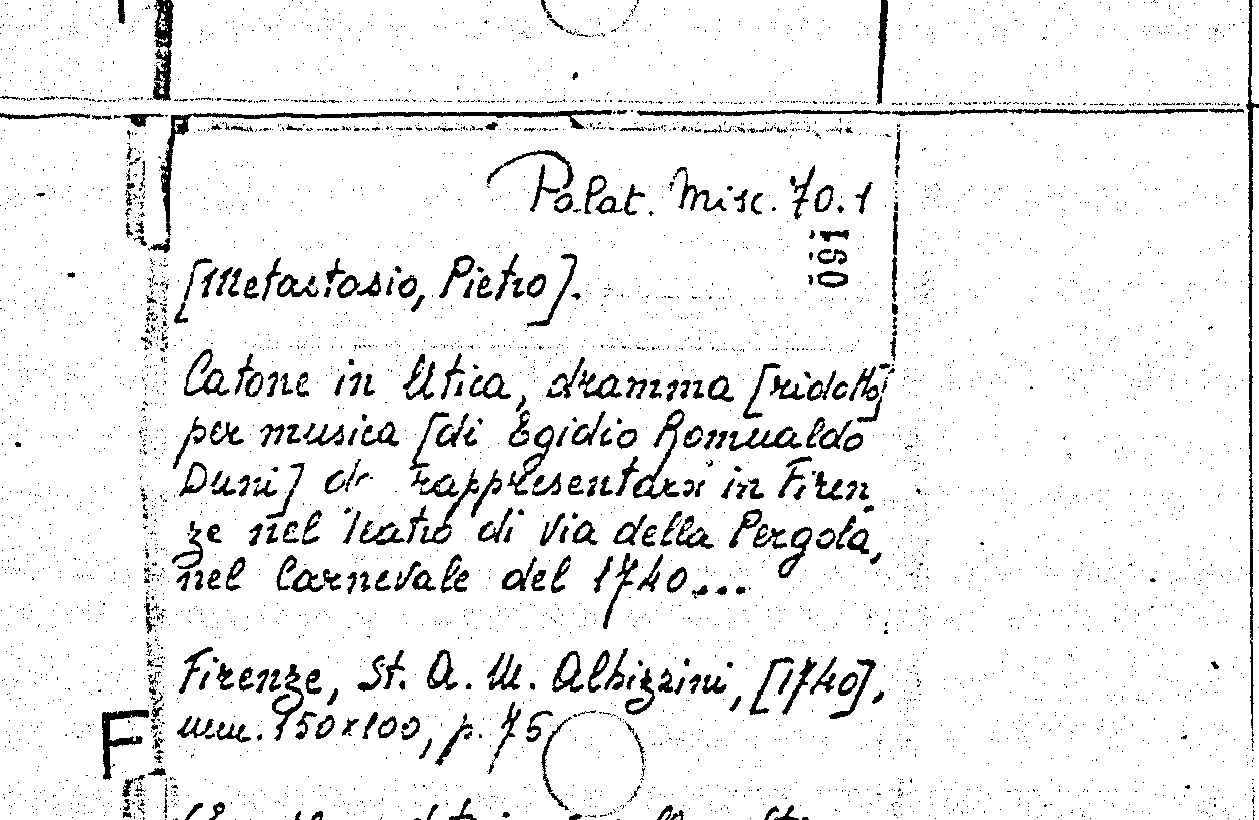 Palat. Misc. 70.1
091
[Metastasio, Pietro].
Catone in Utica, dramma [ridotto]
per musica [di Egidio Romualdo
Duni] da rappresentarsi in Firen
ze nel Teatro di Via della Pergola,
nel Carnevale del 1740...
Firenze, St. A. M. Albizzini, [1740].
mm. 150x100, p. 75
F